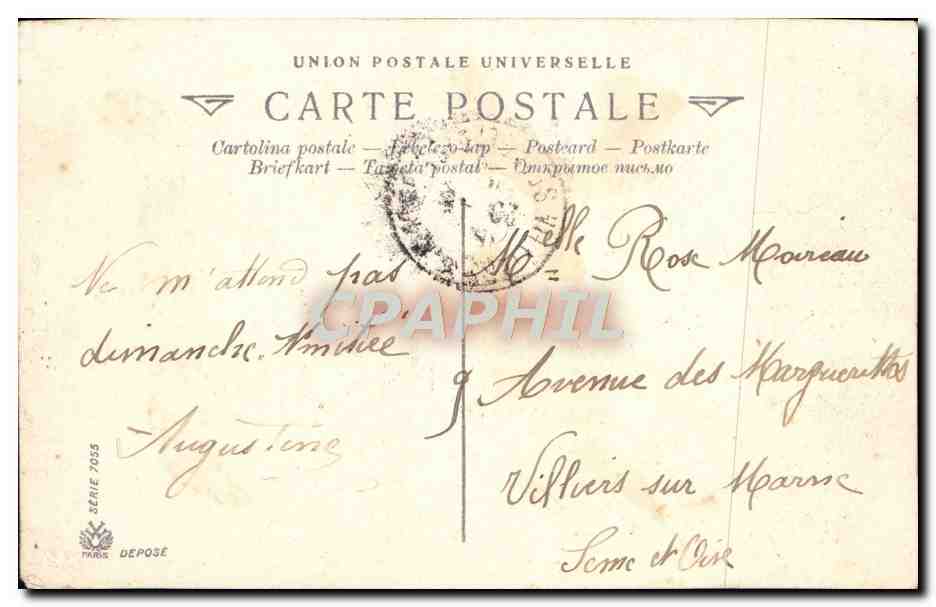 UNION POSTALE UNIVERSELLE
CARTE POSTALE
Cartolina postale — Levelező-lap — Postcard — Postkarte
Briefkart — Tarjeta postal — Открытое письмо
Ne m'attend pas
dimanche. Amitié
Augustine
Melle Rose Moreau
9 Avenue des Marguerittes
Villiers sur Marne
Seine et Oise
CPAPHIL
SÉRIE 7055
PARIS
DEPOSÉ